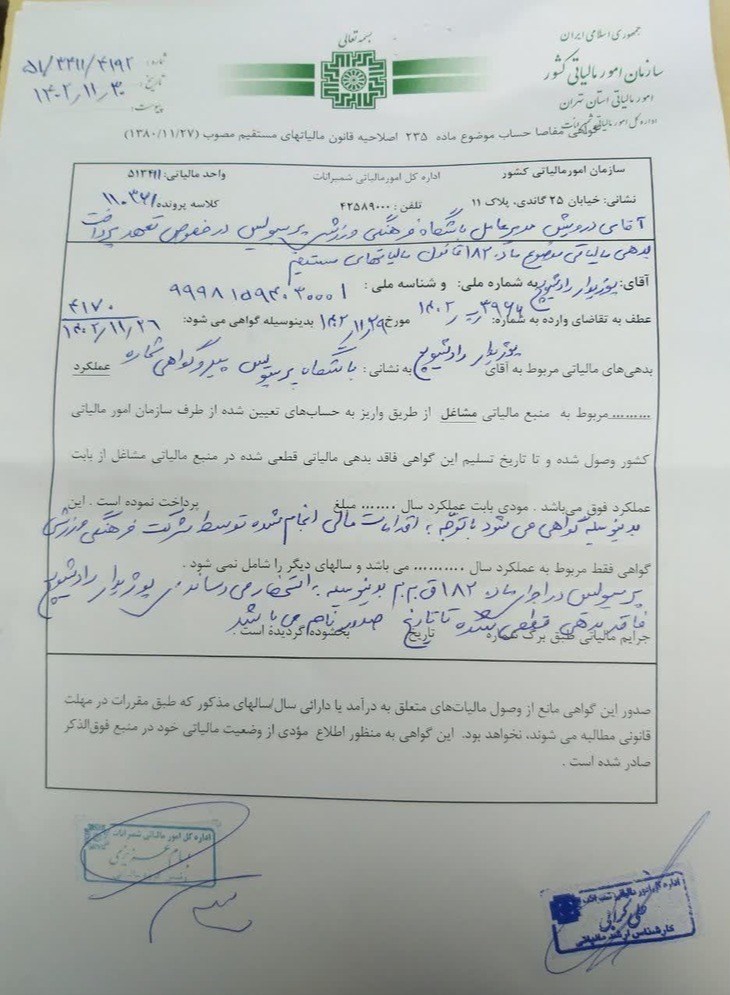 بسمه تعالی
جمهوری اسلامی ایران
سازمان امور مالیاتی کشور
امور مالیاتی استان تهران
اداره کل امور مالیاتی شمیرانات
شماره: ۵۱/۳۴۱۱/۴۱۹۲
تاریخ: ۱۴۰۲,۱۱,۳۰
پیوست:
گواهی مفاصا حساب موضوع ماده ۲۳۵ اصلاحیه قانون مالیاتهای مستقیم مصوب (۱۳۸۰/۱۱/۲۷)
سازمان امورمالیاتی کشور اداره کل امورمالیاتی شمیرانات واحد مالیاتی:
نشانی: خیابان ۲۵ گاندی، پلاک ۱۱ تلفن: ۴۲۵۸۹۰۰۰ کلاسه پرونده
آقای درویش مدیرعامل باشگاه فرهنگی ورزشی پرسپولیس درخصوص تعهد پرداخت
بدهی مالیاتی موضوع ماده ۱۸۲ قانون مالیاتهای مستقیم
آقای: به شماره ملی: و شناسه ملی:
عطف به تقاضای وارده به شماره: مورخ ۱۴۰۲/۱۱/۲۹ بدینوسیله گواهی می شود: ۴۱۷۰
۱۴۰۲/۱۱/۲۶
بدهی‌های مالیاتی مربوط به آقای به نشانی: باشگاه پرسپولیس پیرو گواهی شماره عملکرد
......... مربوط به منبع مالیاتی مشاغل از طریق واریز به حساب‌های تعیین شده از طرف سازمان امور مالیاتی
کشور وصول شده و تا تاریخ تسلیم این گواهی فاقد بدهی مالیاتی قطعی شده در منبع مالیاتی مشاغل از بابت
عملکرد فوق می‌باشد . مودی بابت عملکرد سال ....... مبلغ پرداخت نموده است . این
بدینوسیله گواهی می شود باتوجه به اقدامات مالی انجام شده توسط شرکت فرهنگی ورزشی
گواهی فقط مربوط به عملکرد سال .......... می باشد و سالهای دیگر را شامل نمی شود .
پرسپولیس در اجرای ماده ۱۸۲ ق.م.م بدینوسیله به استحضار می رساند
فاقد بدهی قطعی شده تا تاریخ صدور نامه می باشید
جرایم مالیاتی طبق برگ شماره تاریخ بخشوده گردیده است .
صدور این گواهی مانع از وصول مالیات‌های متعلق به درآمد یا دارائی سال/سالهای مذکور که طبق مقررات در مهلت
قانونی مطالبه می شوند، نخواهد بود. این گواهی به منظور اطلاع مؤدی از وضعیت مالیاتی خود در منبع فوق‌الذکر
صادر شده است .
اداره کل امور مالیاتی شمیرانات
اداره کل امور مالیاتی
کارشناس ارشد مالیاتی